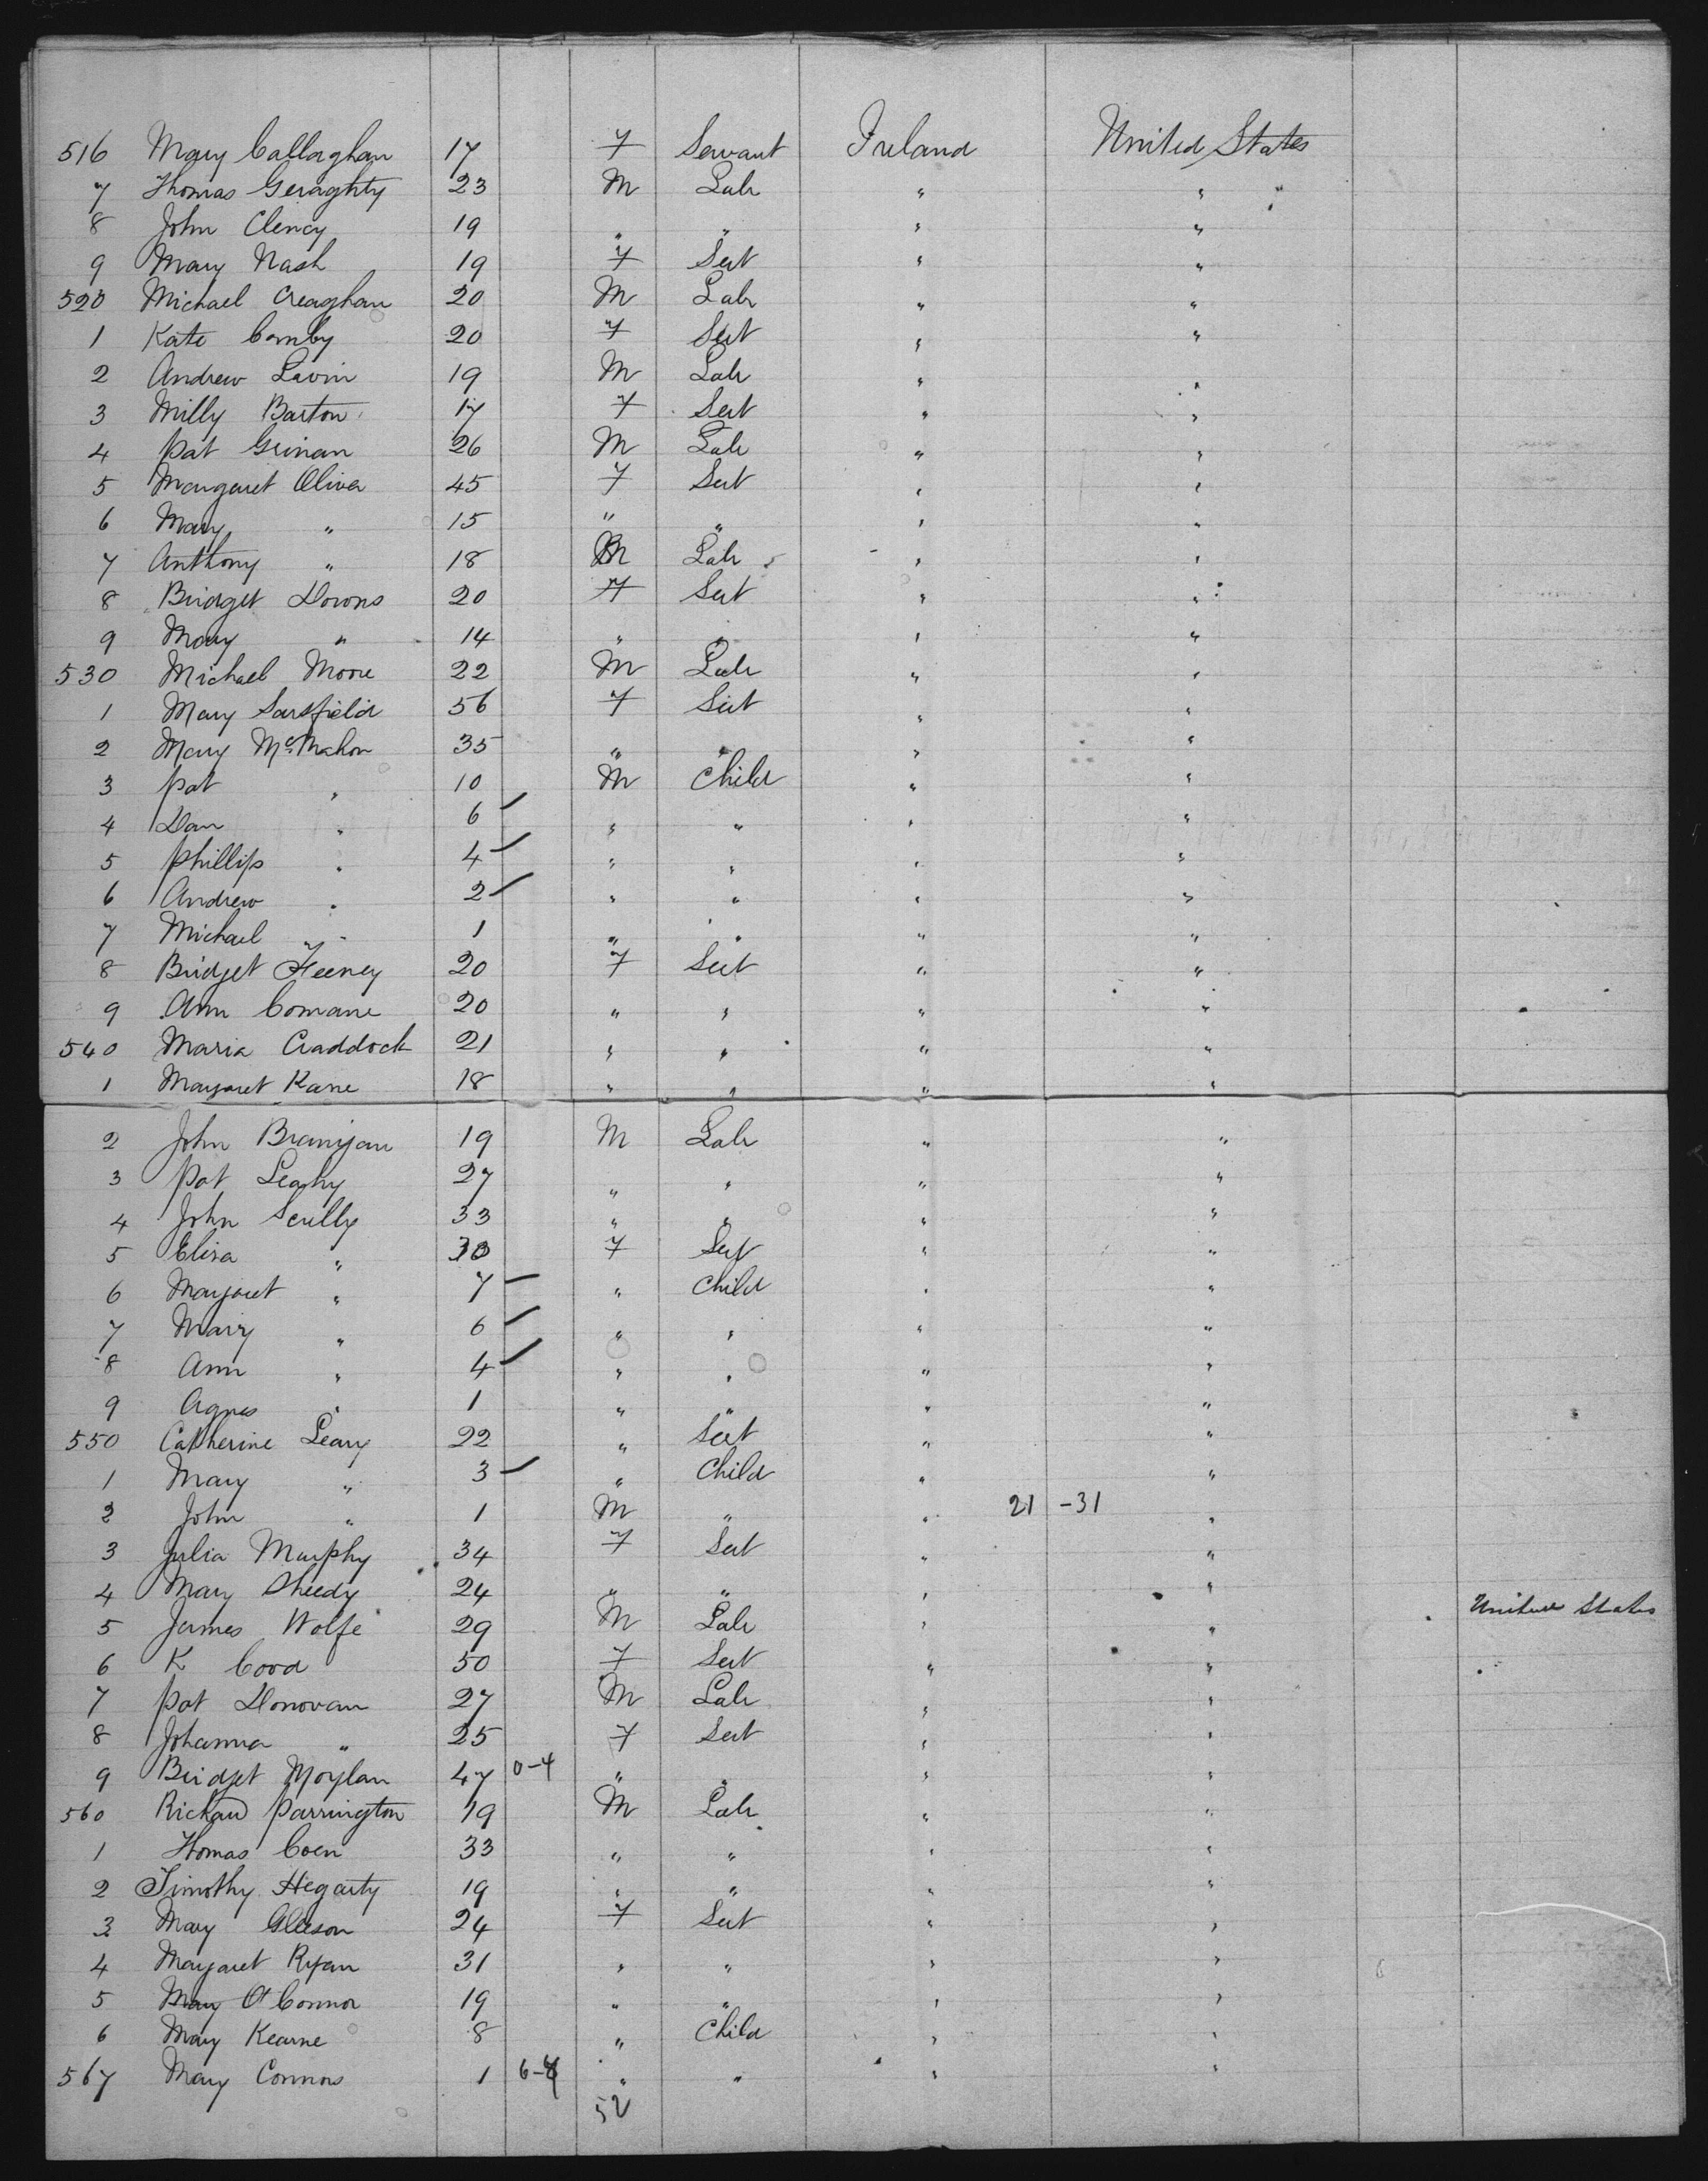 516 Mary Callaghan 17 F Servant Ireland United States
7 Thomas Geraghty 23 M Labr " "
8 John Clency 19 " " " "
9 Mary Nash 19 F Sert " "
520 Michael Creaghan 20 M Labr " "
1 Kate Comby 20 F Sert " "
2 Andrew Lavin 19 M Labr " "
3 Milly Barton 17 F Sert " "
4 Pat Grinan 26 M Labr " "
5 Margaret Oliver 45 F Sert " "
6 Mary " 15 " " " "
7 Anthony " 18 M Labr " "
8 Bridget Downs 20 F Sert " "
9 Mary " 14 " " " "
530 Michael Moore 22 M Labr " "
1 Mary Sarsfield 56 F Sert " "
2 Mary McMahon 35 " " " "
3 Pat " 10 M Child " "
4 Dan " 6 " " " "
5 Phillip " 4 " " " "
6 Andrew " 2 " " " "
7 Michael " 1 " " " "
8 Bridget Feeney 20 F Sert " "
9 Ann Comane 20 " " " "
540 Maria Craddock 21 " " " "
1 Margaret Kane 18 " " " "
2 John Branigan 19 M Labr " "
3 Pat Leahy 27 " " " "
4 John Scully 33 " " " "
5 Eliza " 30 F Sert " "
6 Margaret " 7 " Child " "
7 Mary " 6 " " " "
8 Ann " 4 " " " "
9 Agnes " 1 " " " "
550 Catherine Leary 22 " Sert " "
1 Mary " 3 " Child " "
2 John " 1 M " " 21-31 "
3 Julia Murphy 34 F Sert " "
4 Mary Sheedy 24 " " " " United States
5 James Wolfe 29 M Labr " "
6 K Cood 50 F Sert " "
7 Pat Donovan 27 M Labr " "
8 Johanna " 25 F Sert " "
9 Bridget Moylan 47 0-4 " " " "
560 Richard Parrington 19 M Labr " "
1 Thomas Coen 33 " " " "
2 Timothy Hegarty 19 " " " "
3 Mary Gleeson 24 F Sert " "
4 Margaret Ryan 31 " " " "
5 Mary O'Connor 19 " " " "
6 Mary Kearne 8 " Child " "
567 Mary Connors 1 " " " "
52